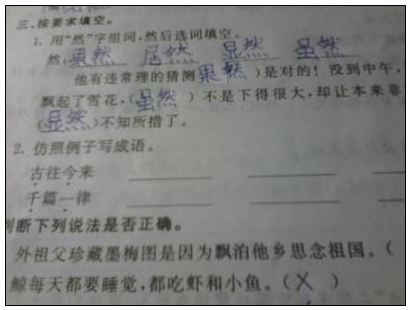 三、按要求填空。
1. 用“然”字组词,然后选词填空。
然:果然 居然 显然 虽然
他有违常理的猜测(果然)是对的!没到中午,
飘起了雪花,(虽然)不是下得很大,却让本来
(显然)不知所措了。
2. 仿照例子写成语。
古往今来
千篇一律
判断下列说法是否正确。
外祖父珍藏墨梅图是因为飘泊他乡思念祖国。(
鲸每天都要睡觉,都吃虾和小鱼。(X)